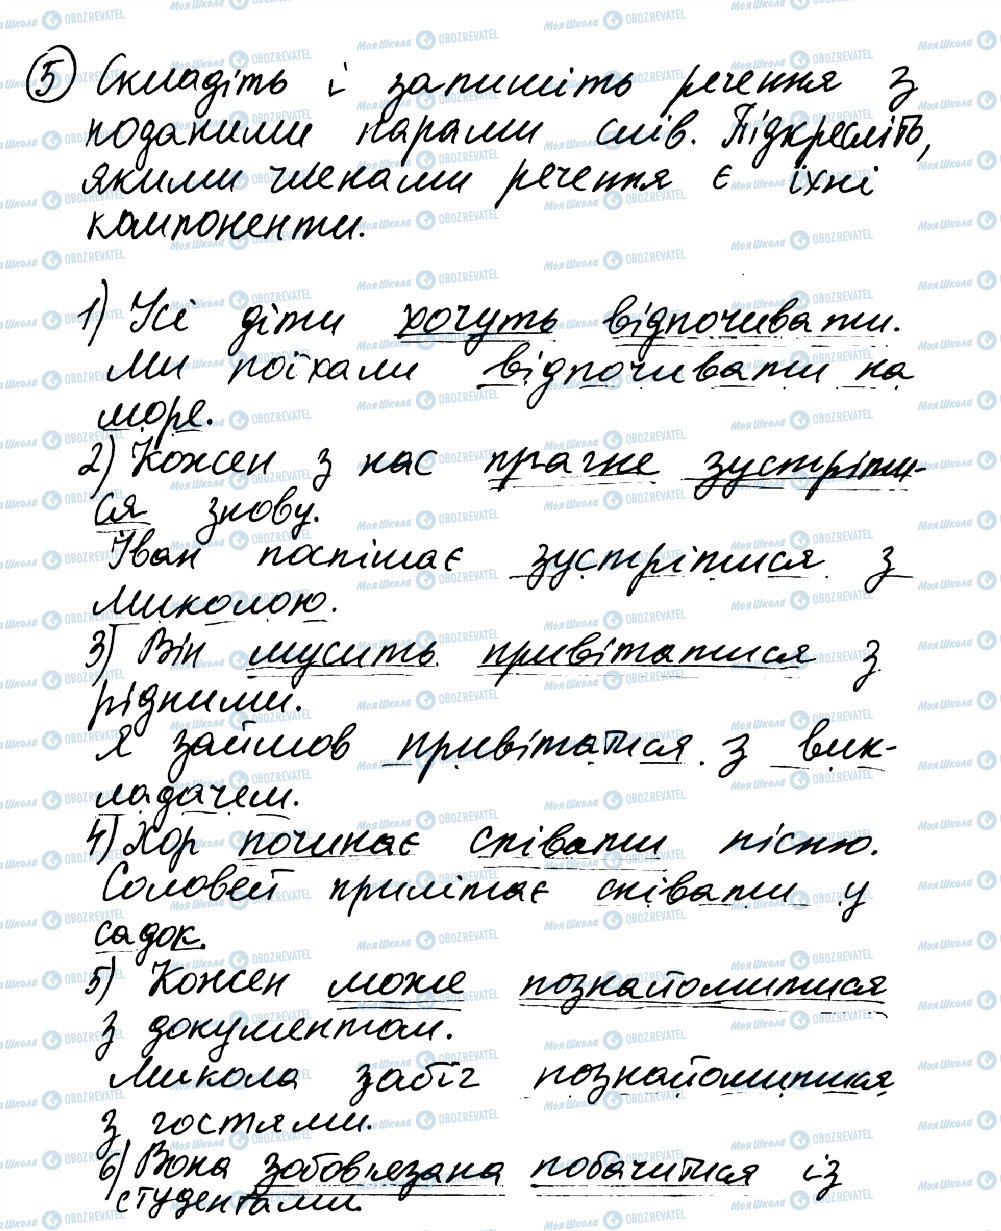 5 Складіть і запишіть речення з
поданими парами слів. Підкресліть,
якими членами речення є їхні
компоненти.
1) Усі діти хочуть відпочивати.
Ми поїхали відпочивати на
море.
2) Кожен з нас прагне зустріти-
ся знову.
Іван поспішає зустрітися з
Миколою.
3) Він мусить привітатися з
рідними.
Я зайшов привітатися з вик-
ладачем.
4) Хор починає співати пісню.
Соловей прилітає співати у
садок.
5) Кожен може познайомитися
з документом.
Микола забіг познайомитися
з гостями.
6) Вона зобов'язана побачитися із
студентами.